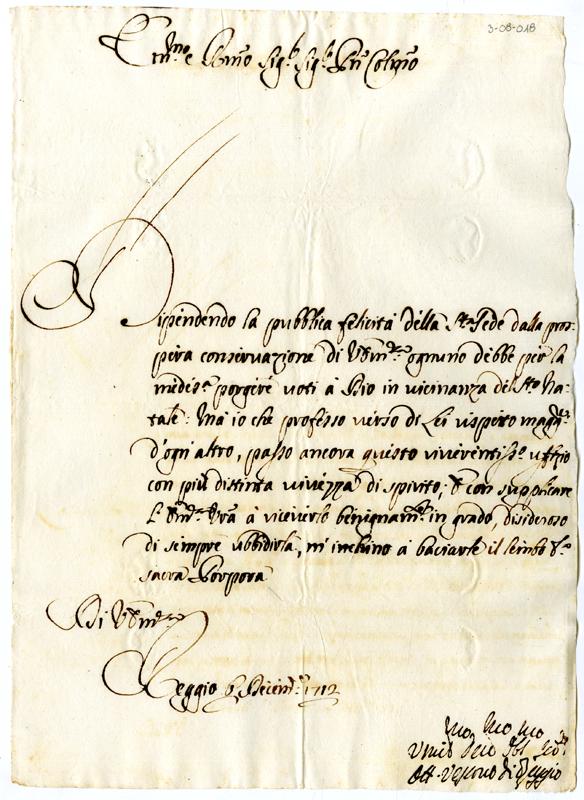 3-08-018
Em.mo e R.mo Sig.r Sig.r P.rn Col.mo
Dipendendo la pubblica felicità della S.ta Sede dalla pros-
pera conservazione di V. Em.za ognuno debbe per la
medes.a porgere voti à Dio in vicinanza del S.to Na-
tale: Mà io che professo verso di Lei rispetto magg.re
d'ogn'altro, passo ancora questo riverentiss.o uffizio
con più distinta vivezza di spirito; E con supplicare
L'Em.za Vrã à riceverlo benignam.te in grado, disideroso
di sempre ubbidirla, m'inchino à baciarle il lembo d.a
sacra Porpora
Di V. Em.za
Reggio Decem.e 1712
Um.o
Vesovo di Reggio